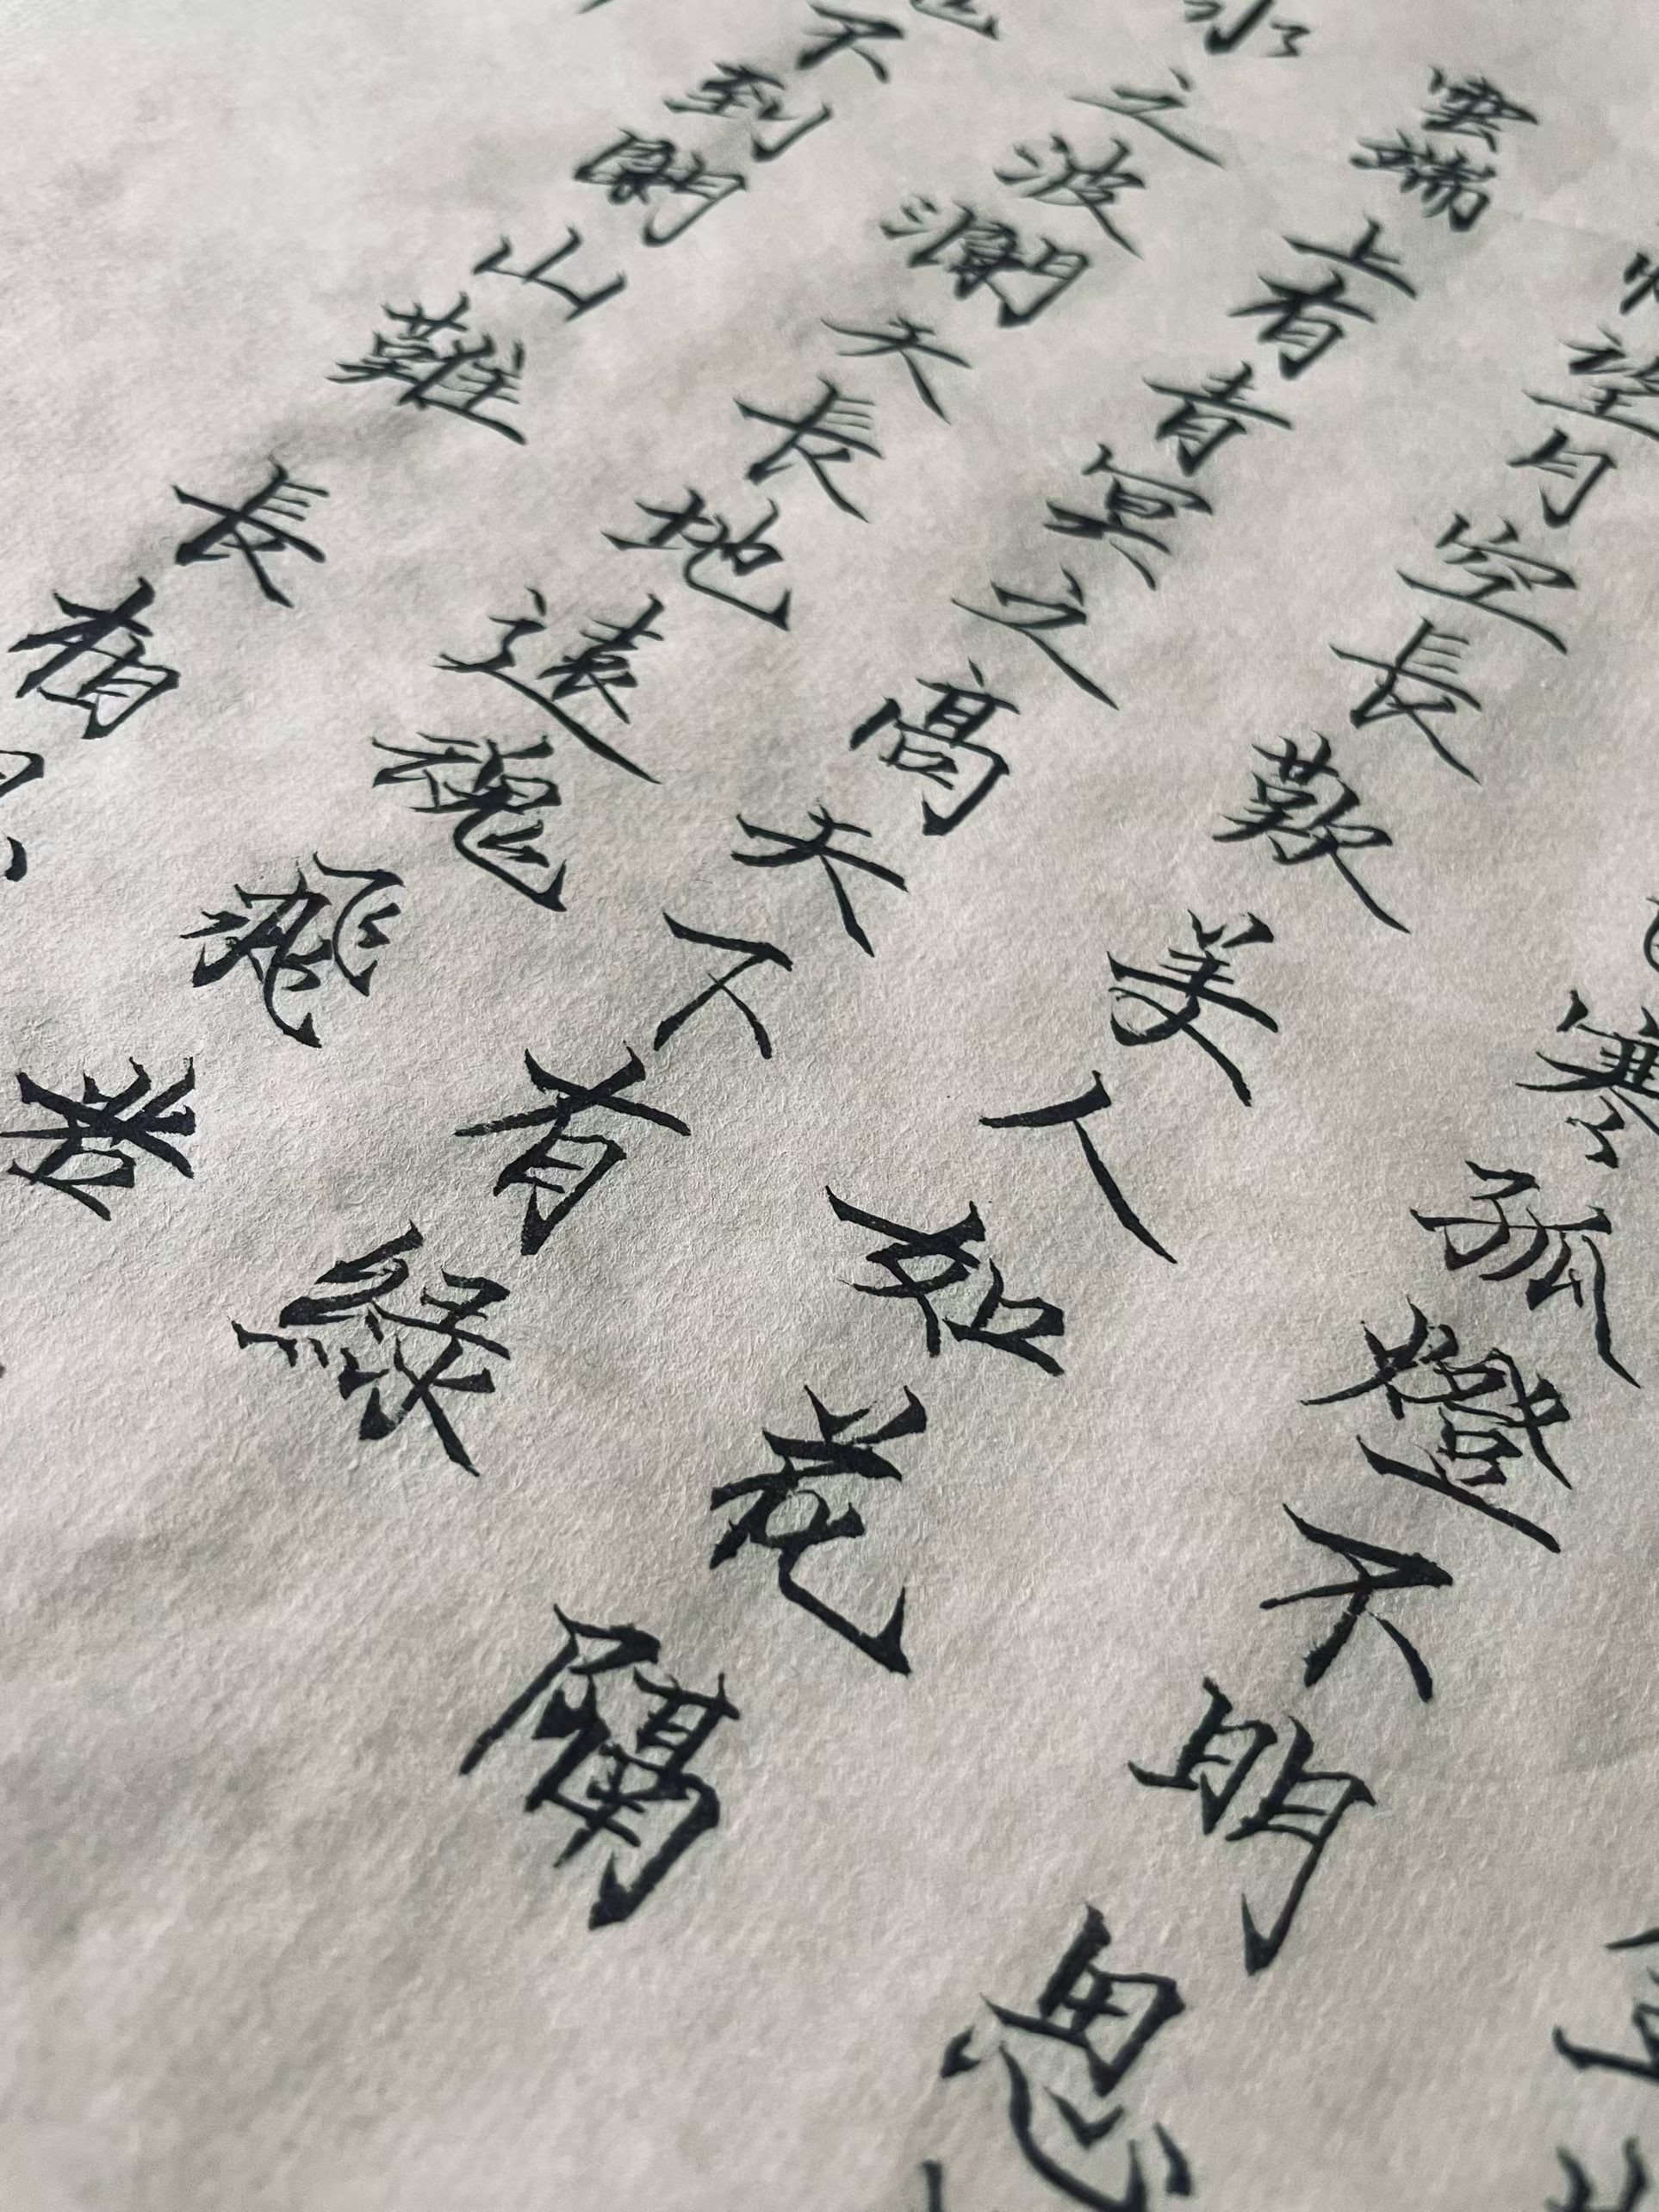 寒孤燈不明思
望月空長歎美人如花隔
雲端上有青冥之高天下有綠
水之波瀾天長地遠魂飛苦
不到關山難長相